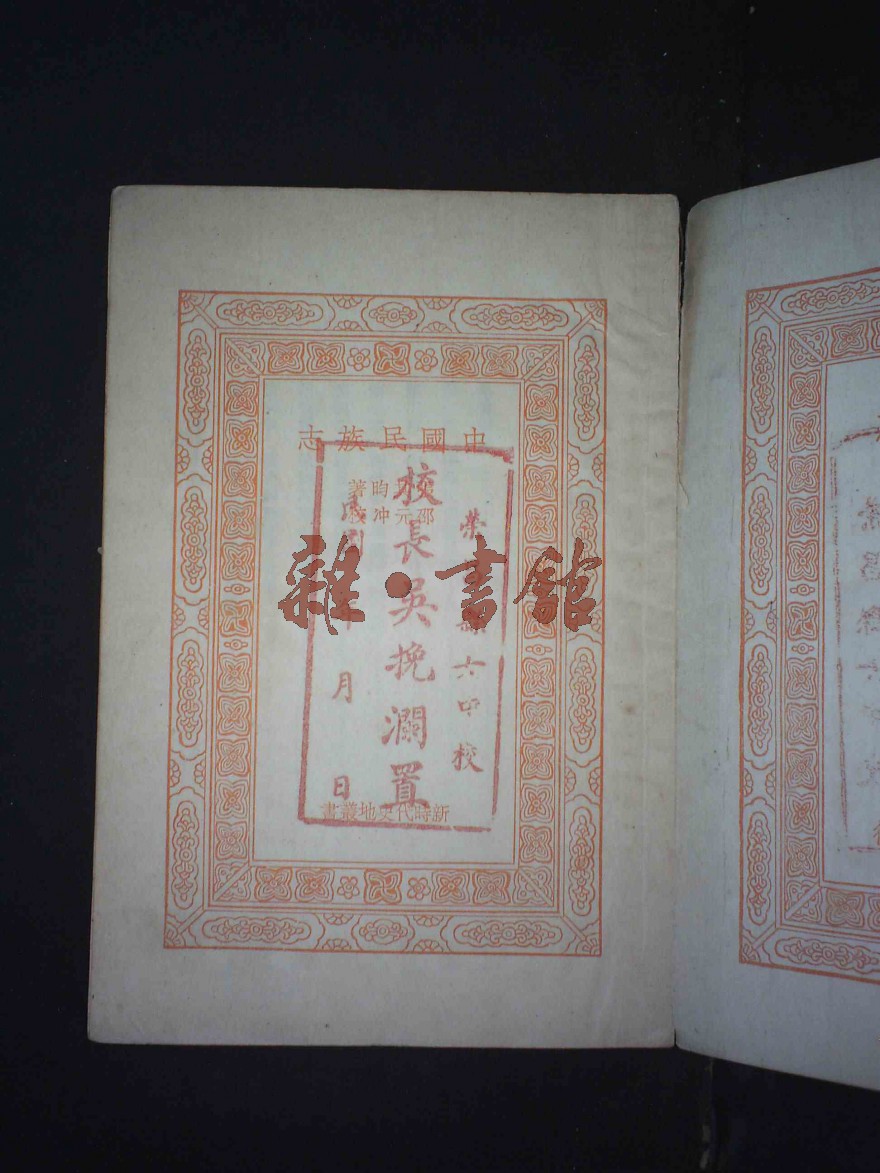 中國民族志
昀著
邵元冲校
榮縣六中校
校長吳挽瀾置
民國年月日
新時代史地叢書
雜·書館